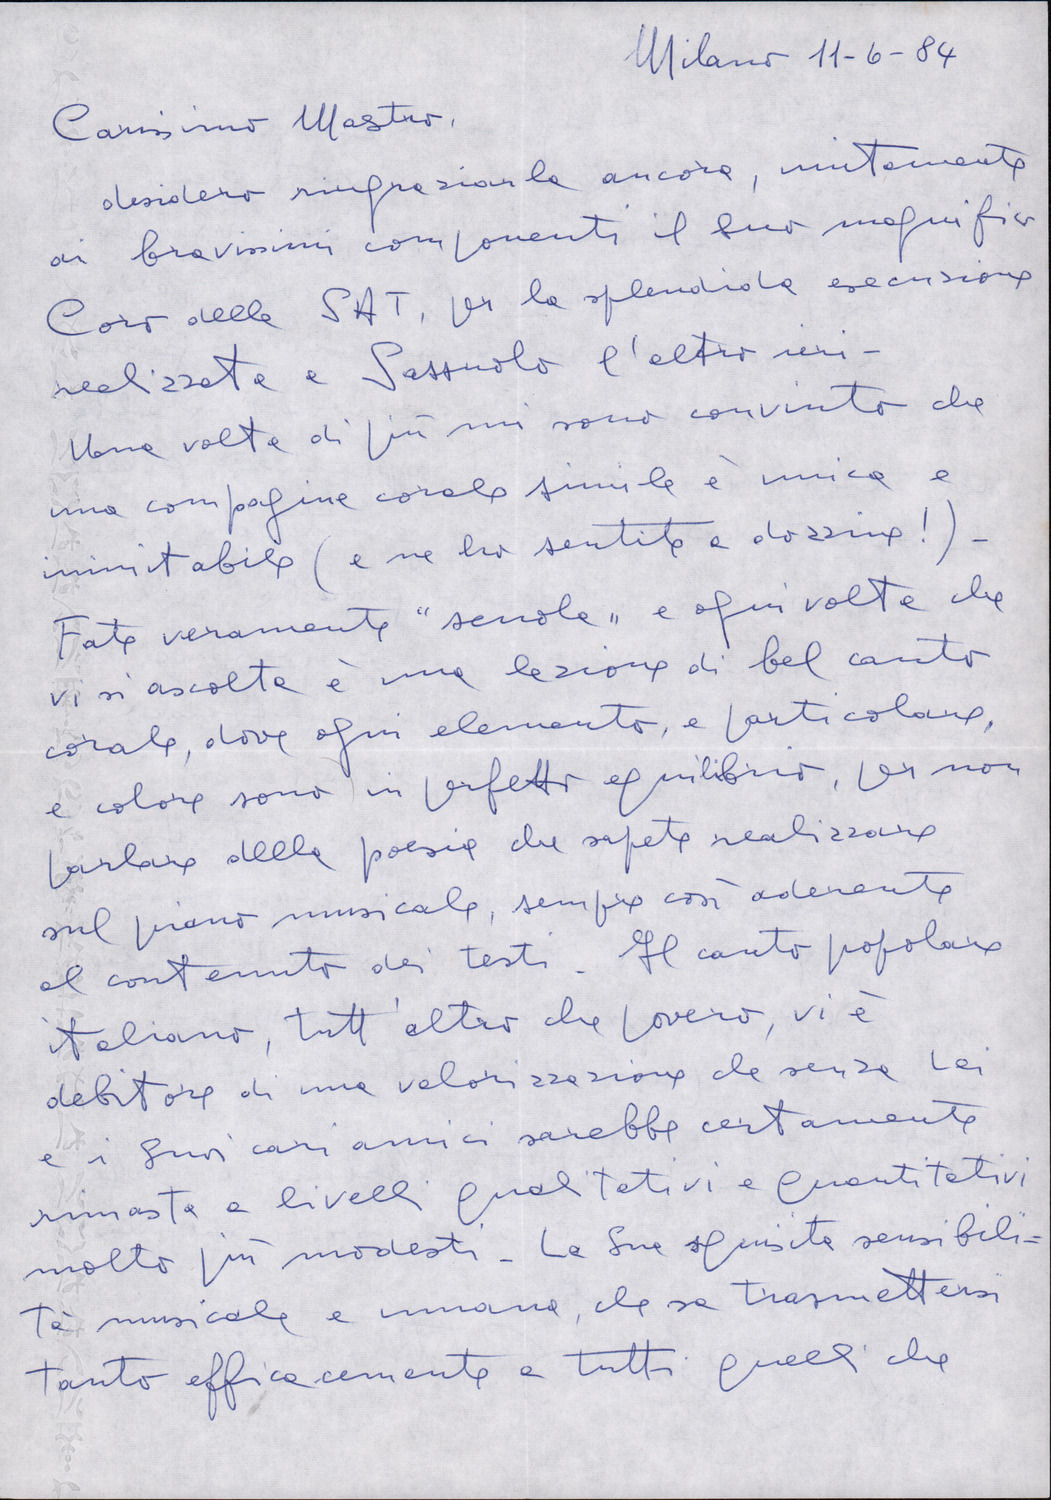 Milano 11-6-84
Carissimo Maestro,
desidero ringraziarla ancora, unitamente
ai bravissimi componenti il Suo magnifico
Coro della SAT, per la splendida esecuzione
realizzata a Sassuolo l'altro ieri -
Una volta di più mi sono convinto che
una compagine corale simile è unica e
inimitabile (e ne ho sentite a dozzine!) -
Fate veramente "scuola" e ogni volta che
vi si ascolta è una lezione di bel canto
corale, dove ogni elemento, e particolare,
e colore sono in perfetto equilibrio, per non
parlare della poesia che sapete realizzare
sul piano musicale, sempre così aderente
al contenuto dei testi - Il canto popolare
italiano, tutt'altro che povero, vi è
debitore di una valorizzazione che senza Lei
e i Suoi cari amici sarebbe certamente
rimasta a livelli qualitativi e quantitativi
molto più modesti - La Sua squisita sensibili=
tà musicale e umana, che sa trasmettersi
tanto efficacemente a tutti quelli che